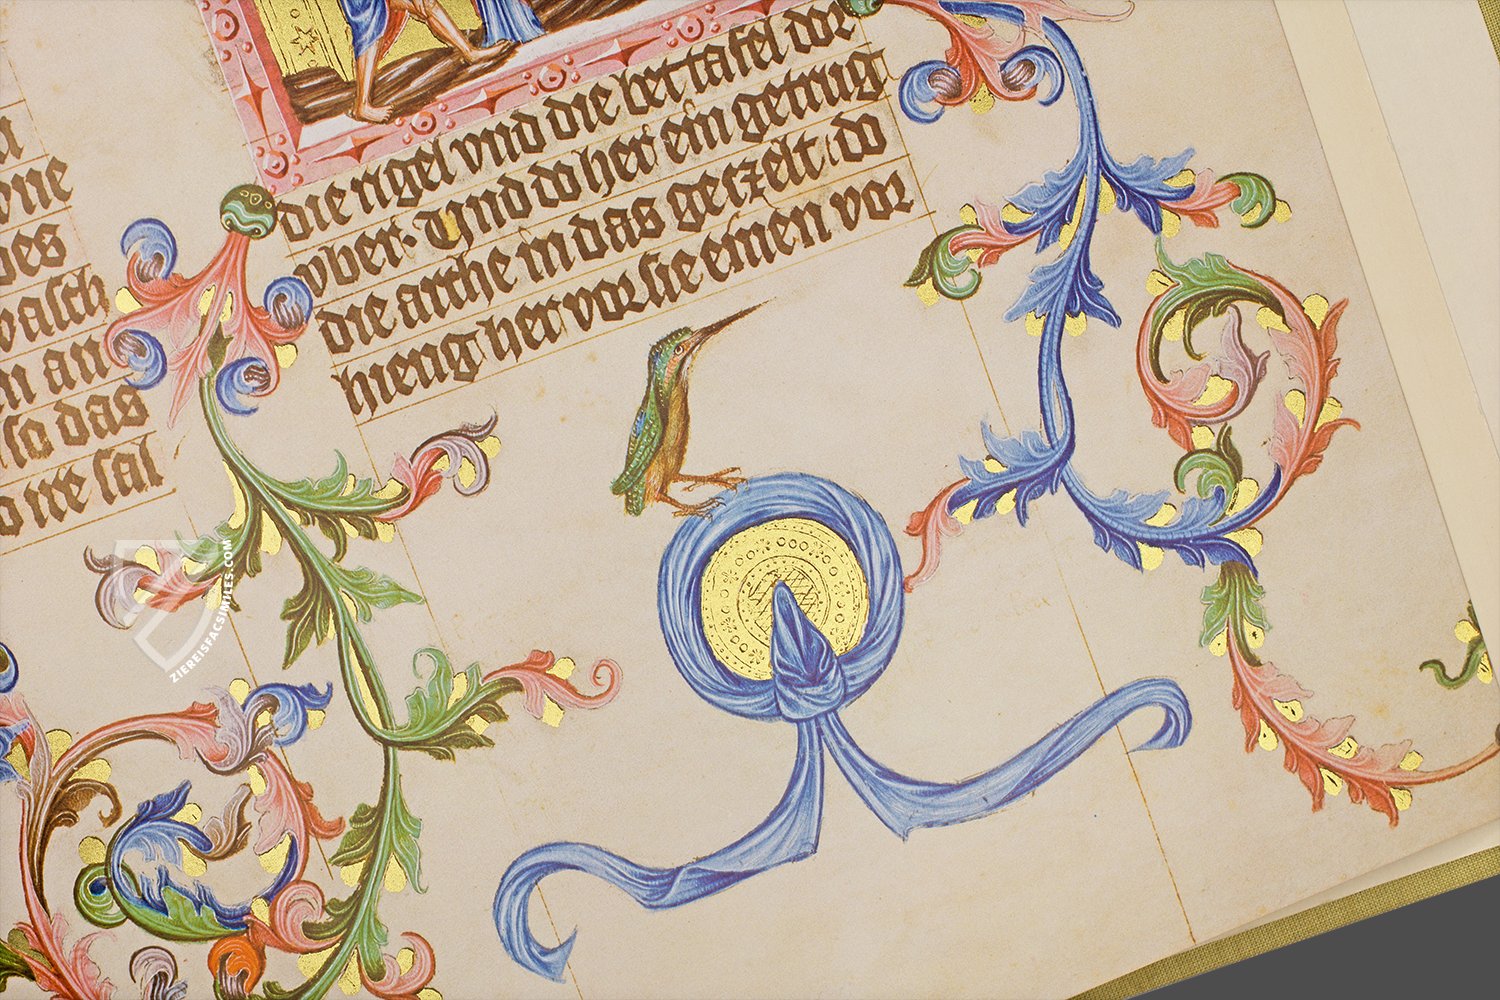 vne
des
wasch
n an
so das
d ire sal
die engel vnd die bettafel dor
vber· Und do her ein getrug
die arche in das geczelt· do
hieng her vor sie einen vor
ZIEREISFACSIMILES.COM